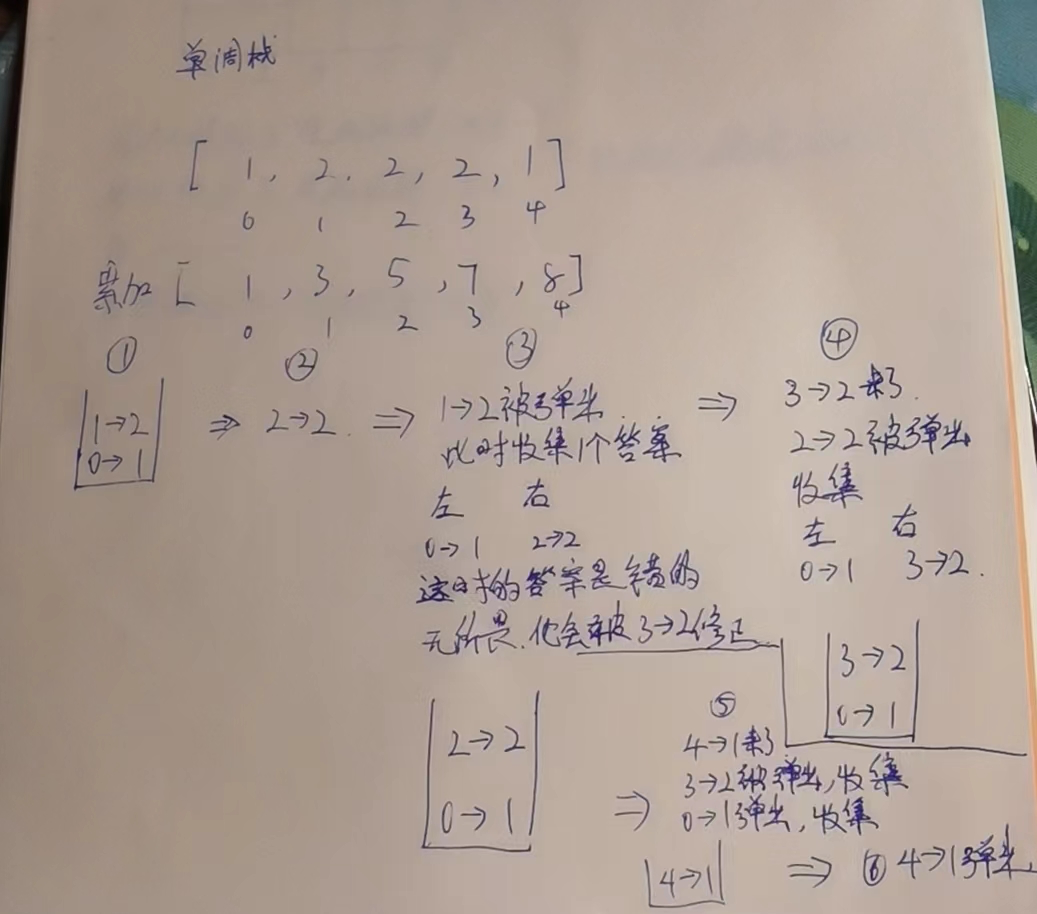 单调栈
[ 1, 2, 2, 2, 1 ]
0 1 2 3 4
累加 [ 1, 3, 5, 7, 8 ]
0 1 2 3 4
① ② ③ ④
1→2
0→1
⇒ 2→2. ⇒
1→2被弹出.
此时收集1个答案
左 右
0→1 2→2
这时的答案是错的
无所畏.他会被3→2修正
2→2
0→1
⇒
3→2来了.
2→2被弹出
收集
左 右
0→1 3→2.
3→2
0→1
⇒
⑤
4→1来了
3→2被弹出,收集
0→1弹出,收集
4→1
⇒ ⑥ 4→1弹出.